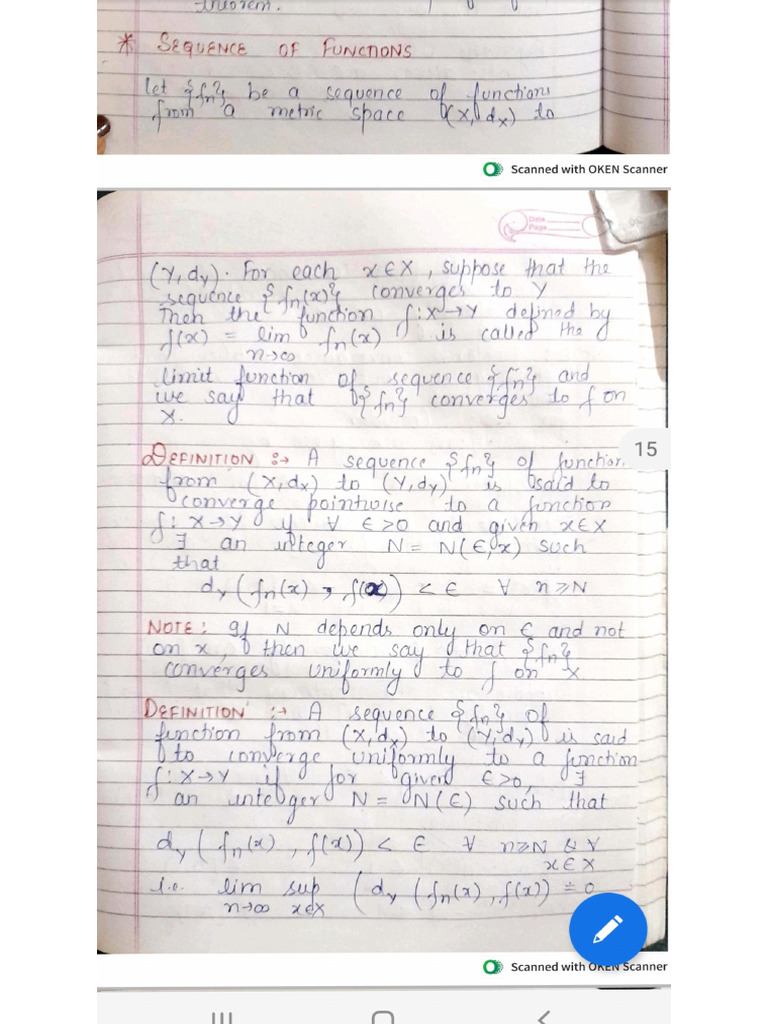 theorem.
* SEQUENCE OF FUNCTIONS
let {fn} be a sequence of functions
from a metric space (X, dx) to
Scanned with OKEN Scanner
Date
Page
(Y, dy). For each x ∈ X, suppose that the
sequence {fn(x)} converges to y
Then the function f: X → Y defined by
f(x) = lim fn(x) is called the
n→∞
limit function of sequence {fn} and
we say that {fn} converges to f on
X.
15
DEFINITION :→ A sequence {fn} of function
from (X, dx) to (Y, dy) is said to
converge pointwise to a function
f: X → Y if ∀ ϵ>0 and given x ∈ X
∃ an integer N = N(ϵ, x) such
that
dy (fn(x), f(x)) < ϵ ∀ n ≥ N
NOTE: If N depends only on ϵ and not
on x, then we say that {fn}
converges uniformly to f on X
DEFINITION :→ A sequence {fn} of
function from (X, dx) to (Y, dy) is said
to converge uniformly to a function
f: X → Y if for given ϵ>0, ∃
an integer N = N(ϵ) such that
dy (fn(x), f(x)) < ϵ ∀ n ≥ N & ∀
x ∈ X
i.e. lim sup (dy (fn(x), f(x)) = 0
n→∞ x∈X
Scanned with OKEN Scanner